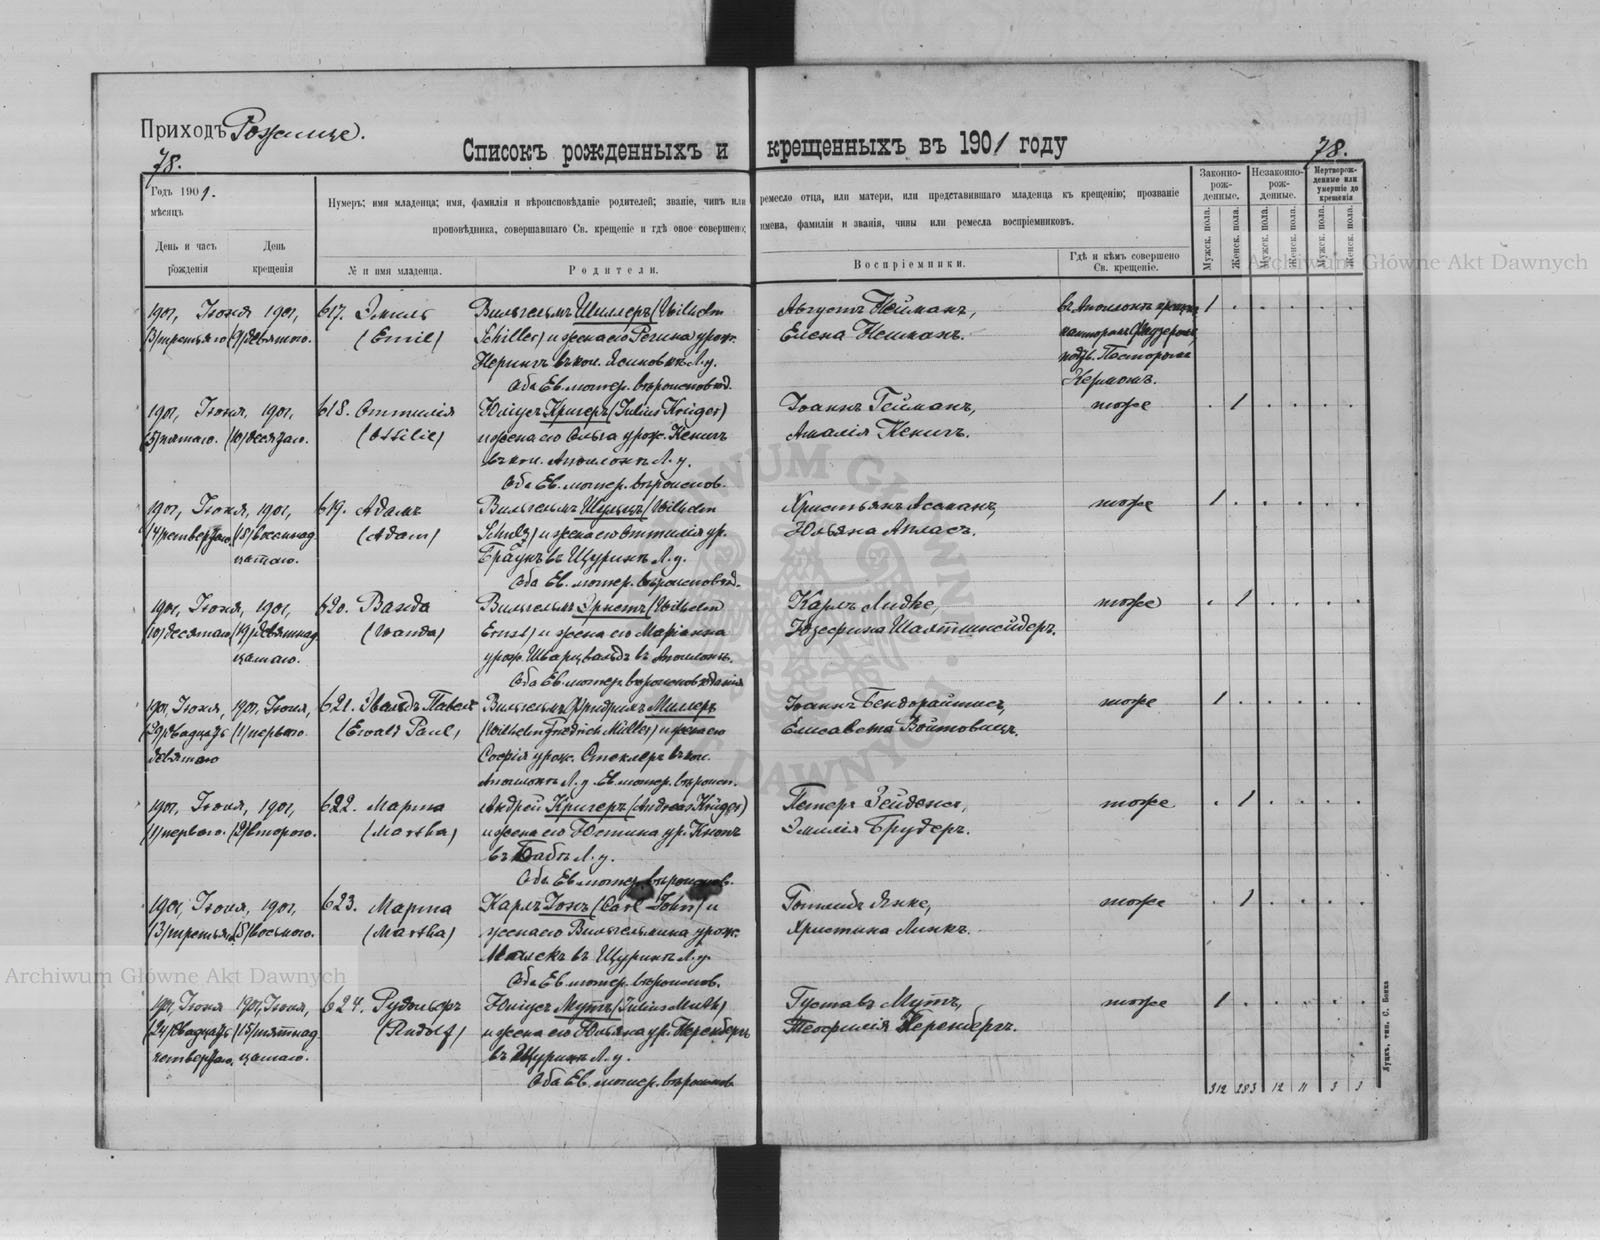 Приходъ Рожище.
78.
Списокъ рожденныхъ и крещенныхъ въ 1901 году
78.
Годъ 1901.
мѣсяцъ
День и часъ рожденія
День крещенія
Нумеръ; имя младенца; имя, фамилія и вѣроисповѣданіе родителей; званіе, чинъ или ремесло отца, или матери, или представившаго младенца къ крещенію; прозваніе
проповѣдника, совершавшаго Св. крещеніе и гдѣ оное совершено; имена, фамиліи и званія, чины или ремесла воспріемниковъ.
№ и имя младенца.
Родители.
Воспріемники.
Гдѣ и кѣмъ совершено Св. крещеніе.
Законно-рож-денные.
Незаконно-рож-денные.
Мертворож-денные или умершіе до крещенія
Мужск. пола.
Женск. пола.
Мужск. пола.
Женск. пола.
Мужск. пола.
Женск. пола.
1901, Іюня 1901,
(3) третьяго (9) девятаго.
617. Эмиль
(Emil)
Вильгельмъ Шиллеръ (Wilhelm
Schiller) и жена его Регина урож.
Нерингъ въ кол. Ясиновкѣ Л. у.
Оба Ев. лютер. вѣроисповѣд.
Августъ Нейманъ,
Елена Нейманъ.
въ Аполлонѣ
канторомъ
подтв. Пасторомъ
Керномъ.
1
1901, Іюня, 1901,
(5) пятаго. (10) десятаго.
618. Оттилія
(Ottilie)
Юліусъ Кригеръ (Julius Krüger)
и жена его Ольга урож. Кенигъ
въ кол. Аполлонѣ Л. у.
Оба Ев. лютер. вѣроиспов.
Іоаннъ Гейманъ,
Амалія Кенигъ.
тоже
1
1901, Іюня, 1901,
(4) четвертаго. (18) восемнад
цатаго.
619. Адамъ
(Adam)
Вильгельмъ Шульцъ (Wilhelm
Schulz) и жена его Оттилія ур.
Браунъ въ Щуринѣ Л. у.
Оба Ев. лютер. вѣроисповѣд.
Христьянъ Ассманъ,
Юльяна Атласъ.
тоже
1
1901, Іюня, 1901,
(10) десятаго (19) девятнад
цатаго.
620. Ванда
(Wanda)
Вильгельмъ Эрнстъ (Wilhelm
Ernst) и жена его Маріанна
урож. Шварцвальдъ въ Аполлонѣ.
Оба Ев. лютер. вѣроисповѣданія
Карлъ Лидке,
Юзефина Шалтшнейдеръ.
тоже
1
1901, Іюня, 1901, Іюля,
(29) двадцать (1) перваго
девятаго
621. Эвальдъ Павелъ
(Ewald Paul)
Вильгельмъ Фридрихъ Миллеръ
(Wilhelm Friedrich Müller) и жена его
Софія урож. Стеклеръ въ кол.
Аполлонѣ Л. у. Ев. лютер. вѣроисп.
Іоаннъ
Елисавета Войтовицъ.
тоже
1
1901, Іюля, 1901,
(1) перваго. (2) второго.
622. Марта
(Martha)
Андрей Кригеръ (Andreas Krüger)
и жена его Юстина ур. Кнопъ
въ Бабѣ Л. у.
Оба Ев. лютер. вѣроиспов.
Петеръ
Эмилія Брудеръ.
тоже
1
1901, Іюля, 1901,
(3) третьяго (8) восьмого.
623. Марта
(Martha)
Карлъ Іонъ (Carl John) и
жена его Вильгельмина урож.
въ Щуринѣ Л. у.
Оба Ев. лютер. вѣроиспов.
Готлибъ Янке,
Христина Линкъ.
тоже
1
1901, Іюня 1901, Іюля,
(24) двадцать (15) пятнад
четвертаго. цатаго.
624. Рудольфъ
(Rudolf)
Юліусъ Мутъ (Julius Muth)
и жена его Юльяна ур. Керенбергъ
въ Щуринѣ Л. у.
Оба Ев. лютер. вѣроиспов
Густавъ Мутъ,
Теофилія Керенбергъ.
тоже
1
312 283 12 11 3 3
Луцкъ, тип. С. Бокка
Archiwum Główne Akt Dawnych
Archiwum Główne Akt Dawnych